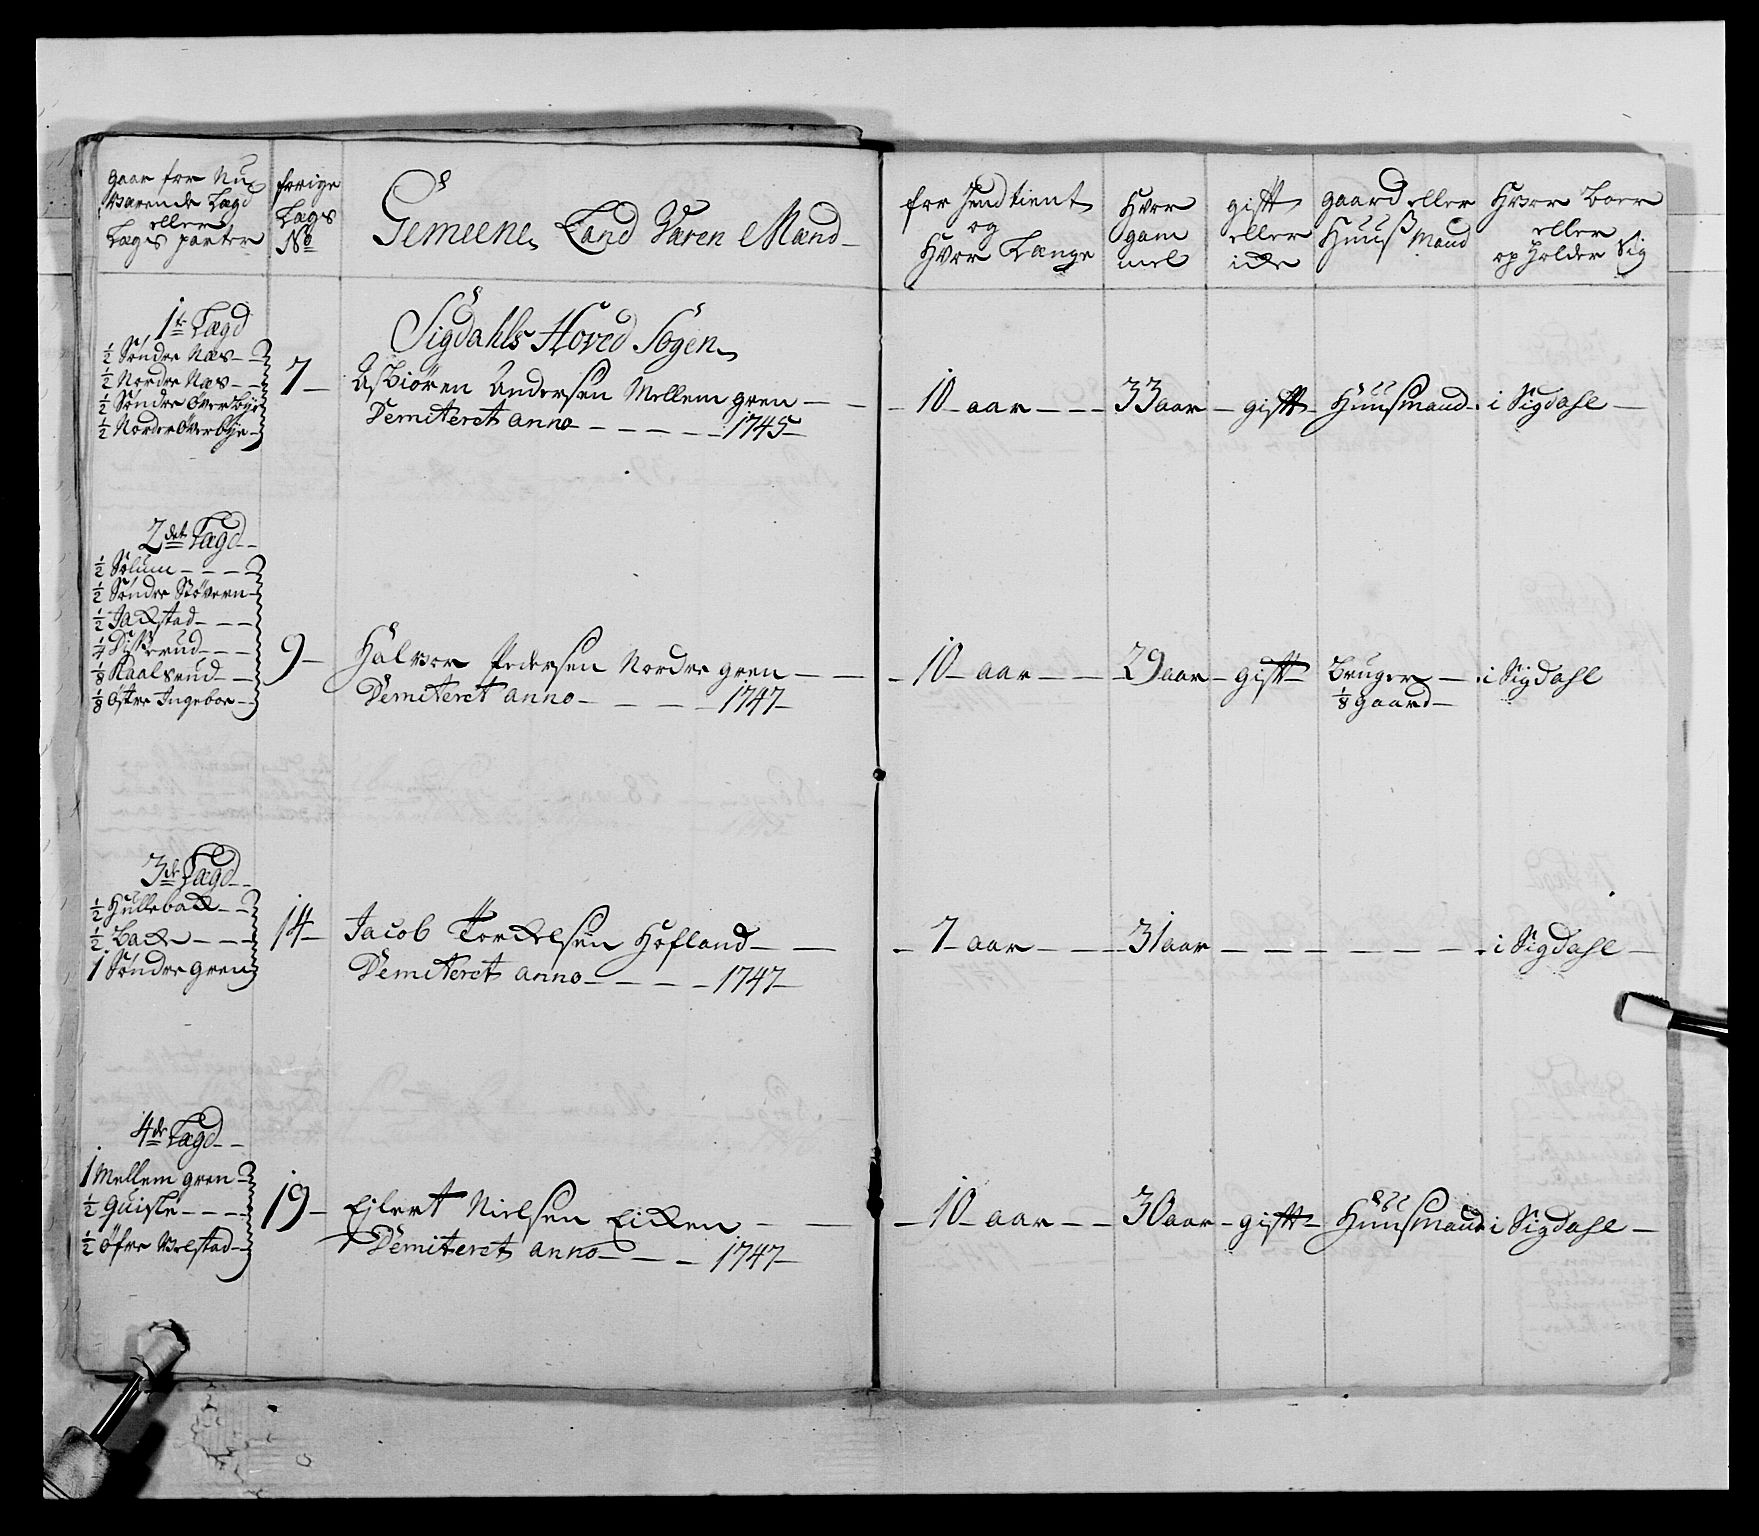 gaar for Nu
værende Lægd
eller
Lægs parter
forige
Lægs
No
Gemeene Land Varen Mænd
for hend tient
og
Hvor Lange
Hvor
gam
mel
gift
eller
icke
gaard eller
Huuss Mand
Hvor Boer
eller
op holder Sig
1te Lægd
1/2 Søndre Næs
1/2 Nordre Næs
1/2 Søndre Øverbye
1/2 Norder Øverbye
7
Sigdahls Hoved Sogen
Asbiören Andersen Mellem gren
Demiteret anno 1745
10 aar
33 aar
gift
Huusmand
i Sigdahl
2det Lægd
1/2 Solum
1/2 Søndre Støvern
1/2 Jackstad
1/4 Disserud
1/8 Kaalsrud
1/8 Østre Ingeboe
9
Halvor Pedersen Nordre gren
Demiteret anno 1747
10 aar
29 aar
gift
Bruger
1/8 gaard
i Sigdahl
3de Lægd
1/2 Hulleback
1/2 Back
1 Søndre gren
14
Jacob Torckelsen Hofland
Demiteret anno 1747
7 aar
31 aar
i Sigdahl
4de Lægd
1 Mellem gren
1/2 Quisle
1/2 Øfre Velstad
19
Ejlert Nielsen Eicken
Demiteret anno 1747
10 aar
30 aar
gift
Huusmand
i Sigdahl